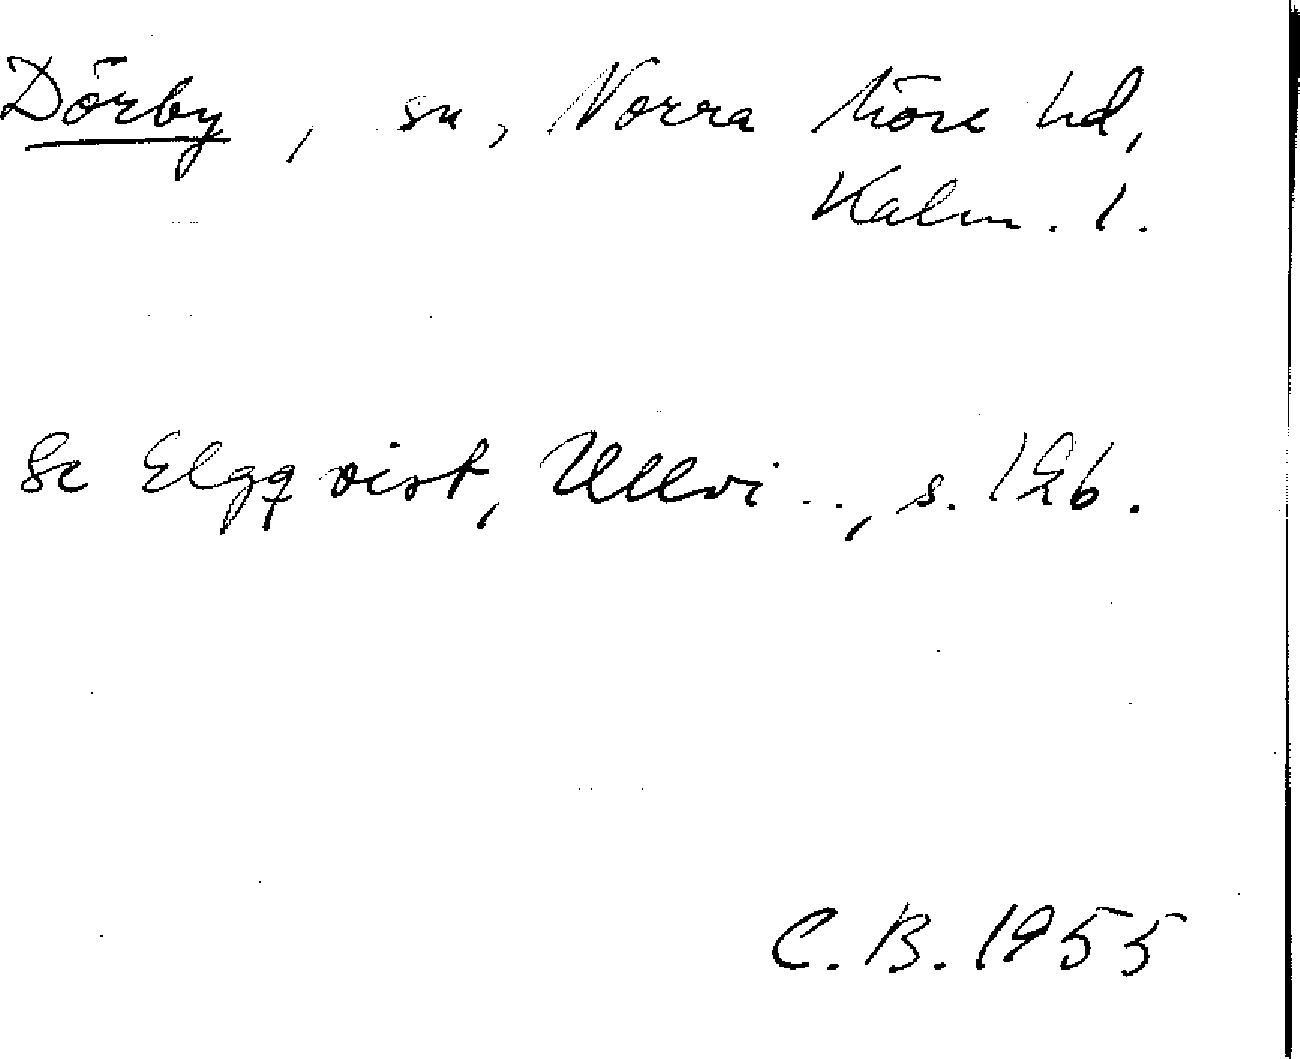 Dörby, sn, Norra Möre hd,
Kalm. l.
Se Elgqvist, Ullvi.., s. 126.
C. B. 1955